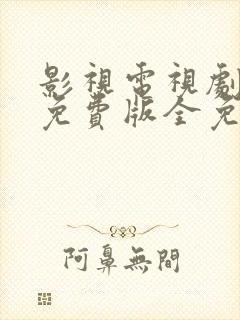 影視電視劇
免費版全免
阿鼻無間